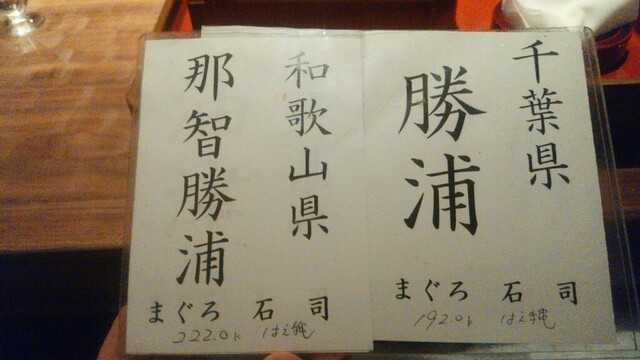 千葉県
勝浦
まぐろ 石司
192.0k はえ縄
和歌山県
那智勝浦
まぐろ 石司
222.0k はえ縄